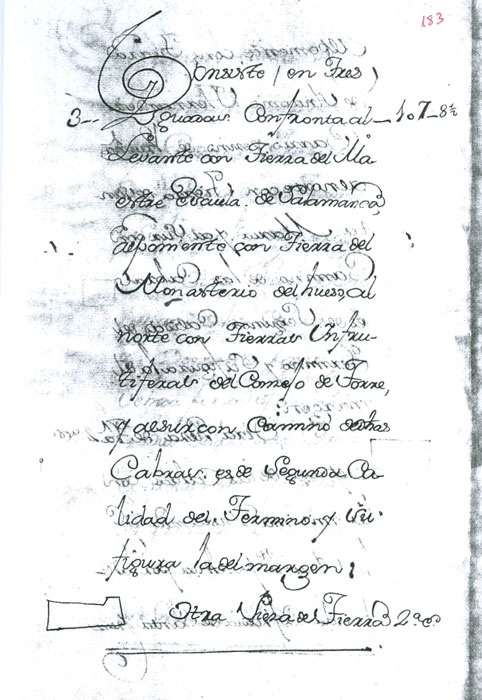 183
Consiste en Tres
3-- Yguadas Confronta al 1 o 7 - 8½
Levante con Tierra del Ma
estre Escuela de Salamanca,
al pomente con Tierra del
Monasterio del hueso, al
norte con Tierras Infru-
tiferas del Consejo de Torre,
y al sur con Camino de las
Cabras. es de Segunda Ca-
lidad del Termino, y su
figura la del margen:
Otra Pieza de Tierra 2ª